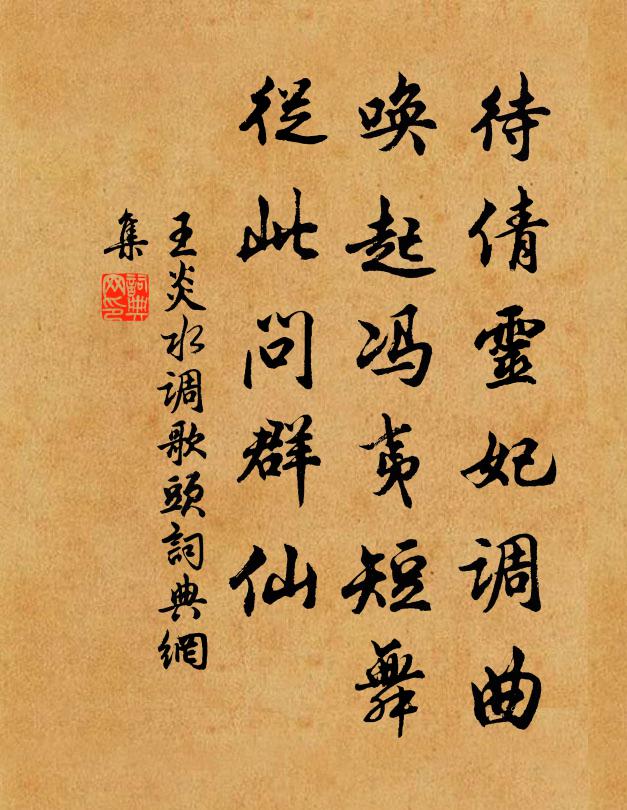 待倩靈妃调曲
唤起冯夷短舞
從此问群仙
王炎水调歌頭詞典網
集
詞典网印